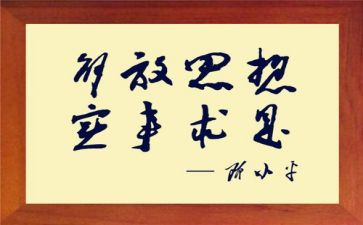 解放思想
实事求是
——邓小平